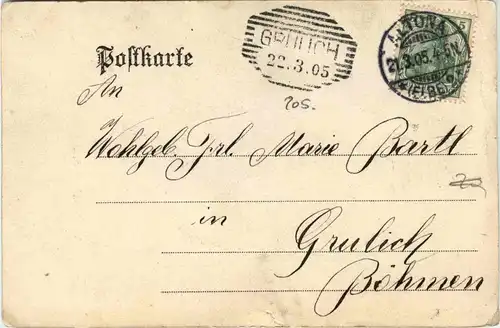 Postkarte
GRULICH
22.3.05
ALTONA
2.3.05.4-5N
*(ELBE)
20s.
An
Wohlgeb. Frl. Marie Bartl
in
Grulich
Böhmen